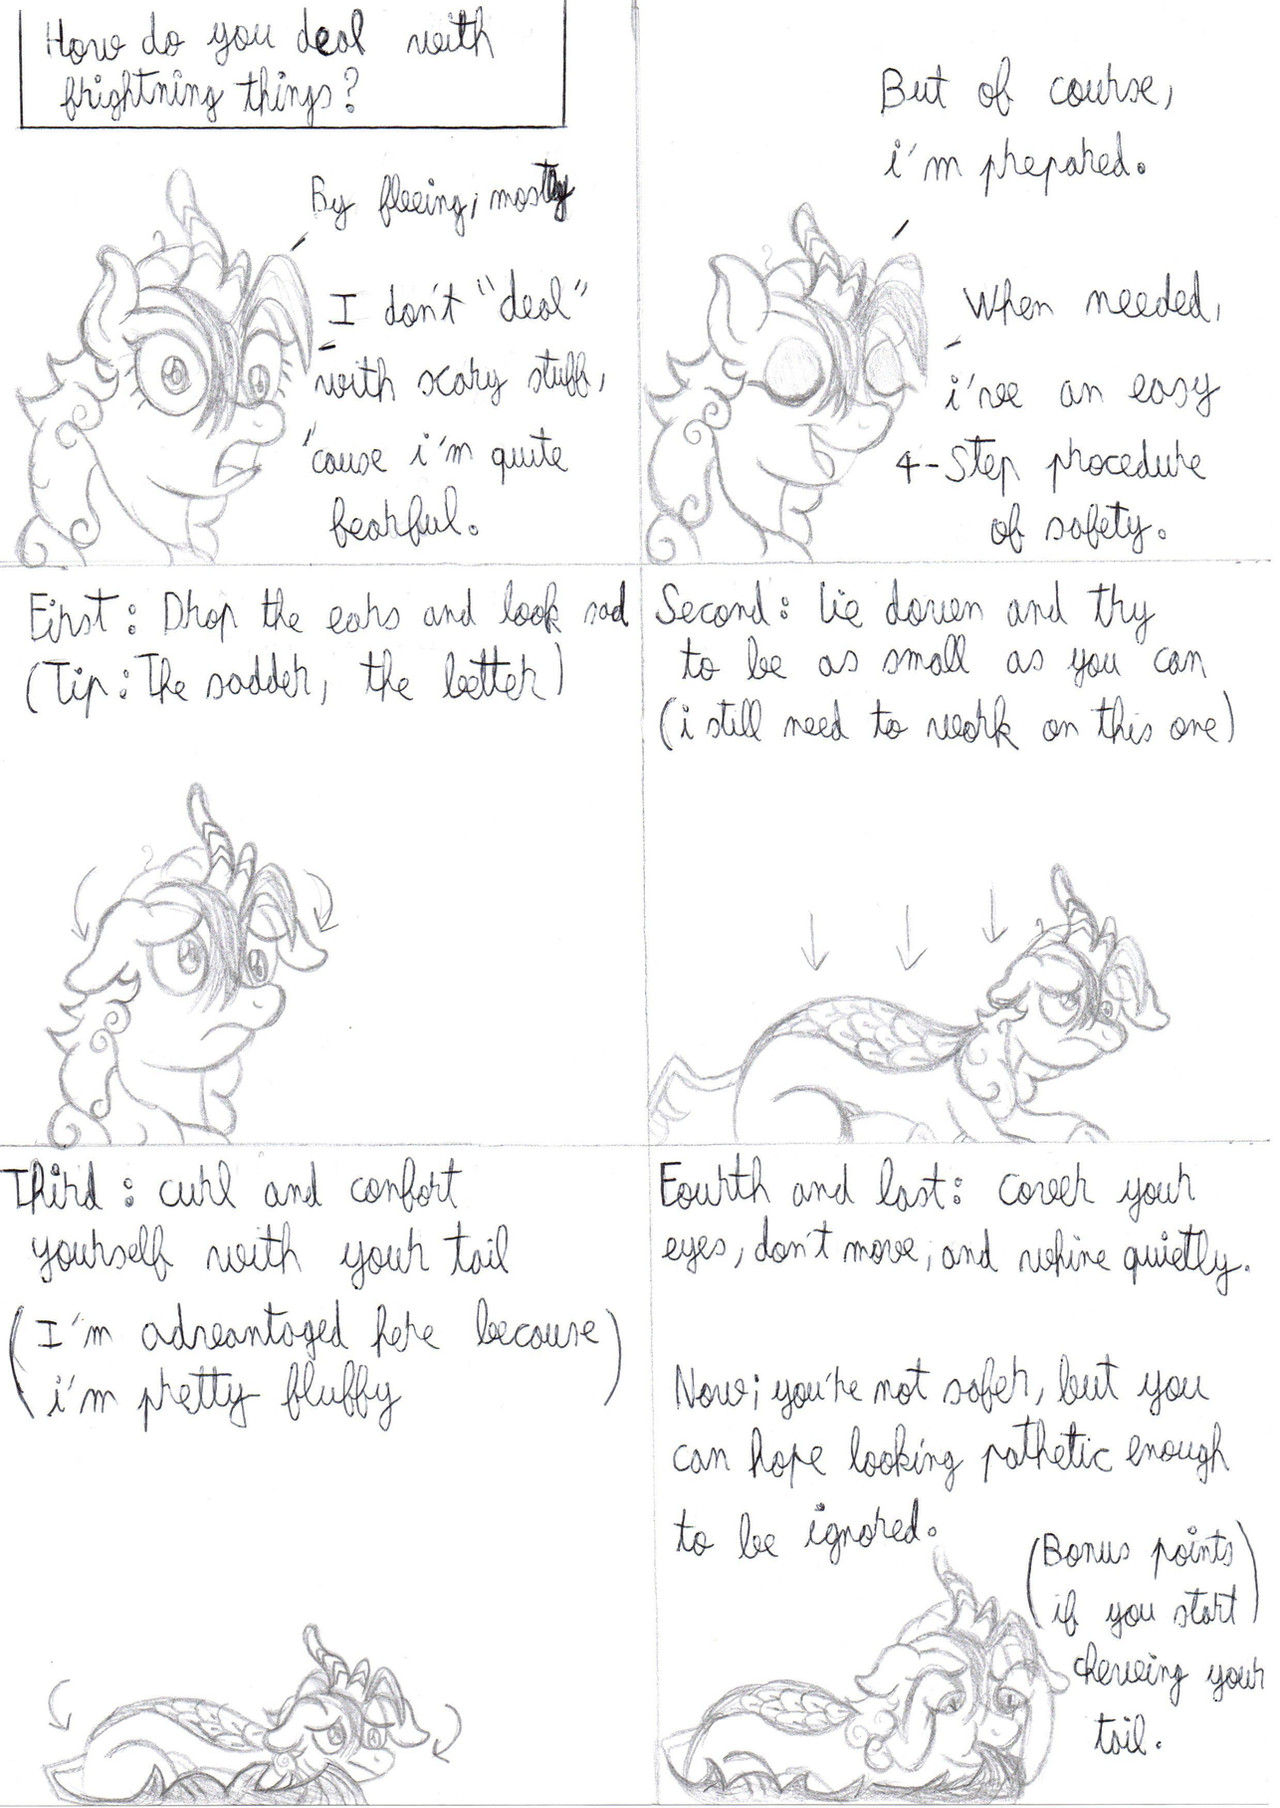 How do you deal with
frightning things?
By fleeing, mostly
I don't "deal"
with scary stuff,
'cause i'm quite
fearful.
But of course,
i'm prepared.
When needed,
i've an easy
4-Step procedure
of safety.
First: Drop the ears and look sad
(Tip: The sadder, the better)
Second: Lie down and try
to be as small as you can
(i still need to work on this one)
Third: curl and confort
yourself with your tail
(I'm advantaged here because
i'm pretty fluffy)
Fourth and last: Cover your
eyes, don't move, and whine quietly.
Now, you're not safer, but you
can hope looking pathetic enough
to be ignored.
(Bonus points
if you start
chewing your
tail.)